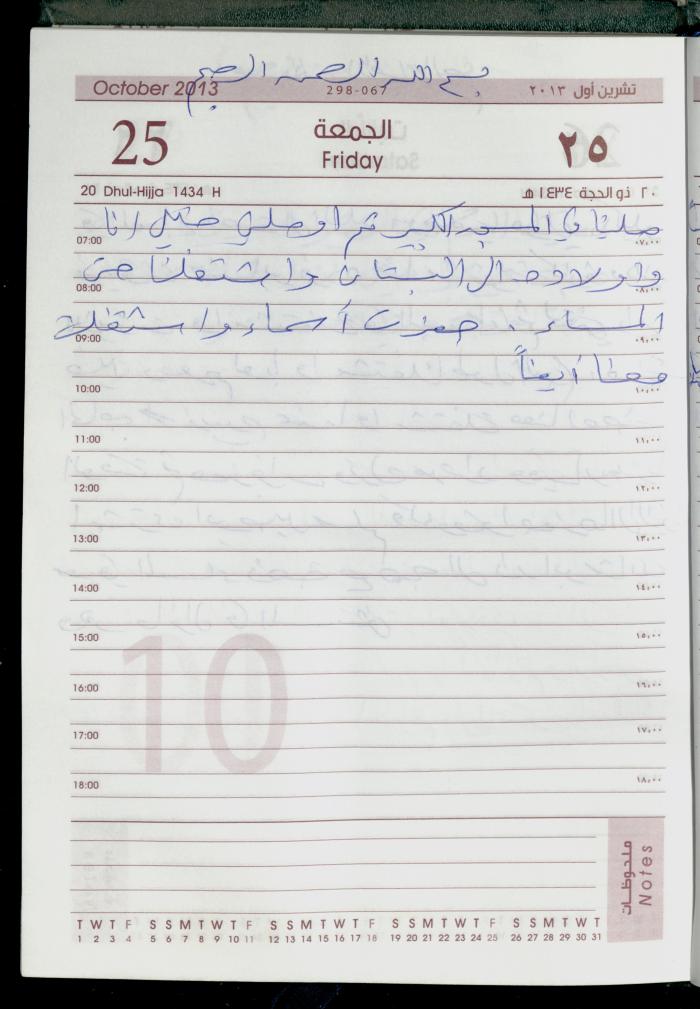 بسم الله الرحمن الرحيم
October 2013 298-067 تشرين أول ٢٠١٣
25 الجمعة ٢٥
Friday
20 Dhul-Hijja 1434 H ٢٠ ذو الحجة ١٤٣٤ هـ
صلينا في المسجد الكبير ثم اوصلني خليل انا
07:00 ٠٧,٠٠
واولاده الى البستان واشتغلنا حتى
08:00 ٠٨,٠٠
المساء . حضرت أسماء واشتغلت
09:00 ٠٩,٠٠
معنا أيضاً
10:00 ١٠,٠٠
11:00 ١١,٠٠
12:00 ١٢,٠٠
13:00 ١٣,٠٠
14:00 ١٤,٠٠
15:00 ١٥,٠٠
10
16:00 ١٦,٠٠
17:00 ١٧,٠٠
18:00 ١٨,٠٠
ملحوظات
Notes
T W T F S S M T W T F S S M T W T F S S M T W T F S S M T W T
1 2 3 4 5 6 7 8 9 10 11 12 13 14 15 16 17 18 19 20 21 22 23 24 25 26 27 28 29 30 31